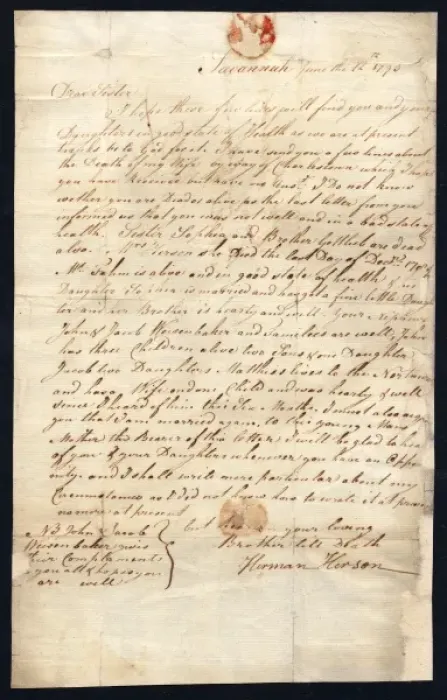 Savannah June the 12th 1790
Dear Sister
I hope these few lines will find you and your
Daughters in good state of Health as we are at present
thanks be to God for it. I have send you a few lines about
the Death of my Wife by way of Charlestown which I hope
you have Received but have no I Do not know
wether you are Dead or alive as the last letter from you
informed us that you was not well and in a bad state of
health. Sister Sophia and Brother Gottlieb are dead
also. Mrs. she Died the last Day of Decr.
Mr. is alive and in good state of health
Daughter is married and has got a fine little Daugh
ter and our Brother is hearty and well. Your Nephews
John & Jacob Weisenbaker and families are well, John
has three Children alive two Sons & one Daughter
Jacob two Daughters Matthew lives to the Northward
and have a Wife and one Child and was hearty & well
since I heard of him this Six Months. I must also acquaint
you that I am married again, to this young Mans
Mother the Bearer of this letter I will be glad to hear
of you & your Daughters whenever you have an Oppor
tunity and I shall write more particular about my
Circumstances as I did not know how to write it at present
no more at present
but remain your loving
Brother till Death
Herman Herson
NB John & Jacob
Weisenbaker
Their Compliments
you all & hopes you
are well